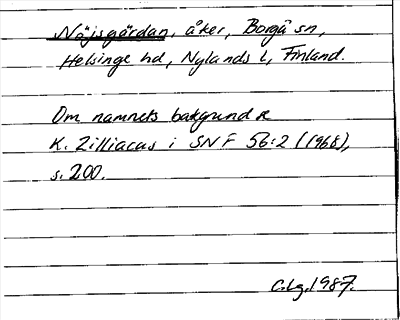 Nöjsgärdan, åker, Borgå sn,
Helsinge hd, Nylands l, Finland.
Om namnets bakgrund se
K. Zilliacus i SNF 56:2 (1968),
s. 200.
C.Lg. 1987.